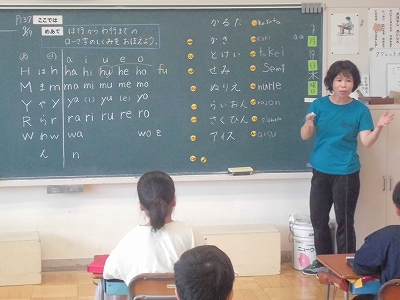 P.37 ここでは
めあて は行からわ行までの
ローマ字のしくみをおぼえよう。
a i u e o
H は h ha hi hu he ho fu
M ま m ma mi mu me mo
Y や y ya (i) yu (e) yo
R ら r ra ri ru re ro
W わ w wa wo を
ん n
かるた karuta
かき kaki
とけい tokei
せみ semi
ぬりえ nurie
らいおん raion
さくひん
アイス aisu
7
月
19
日
木
曜
日